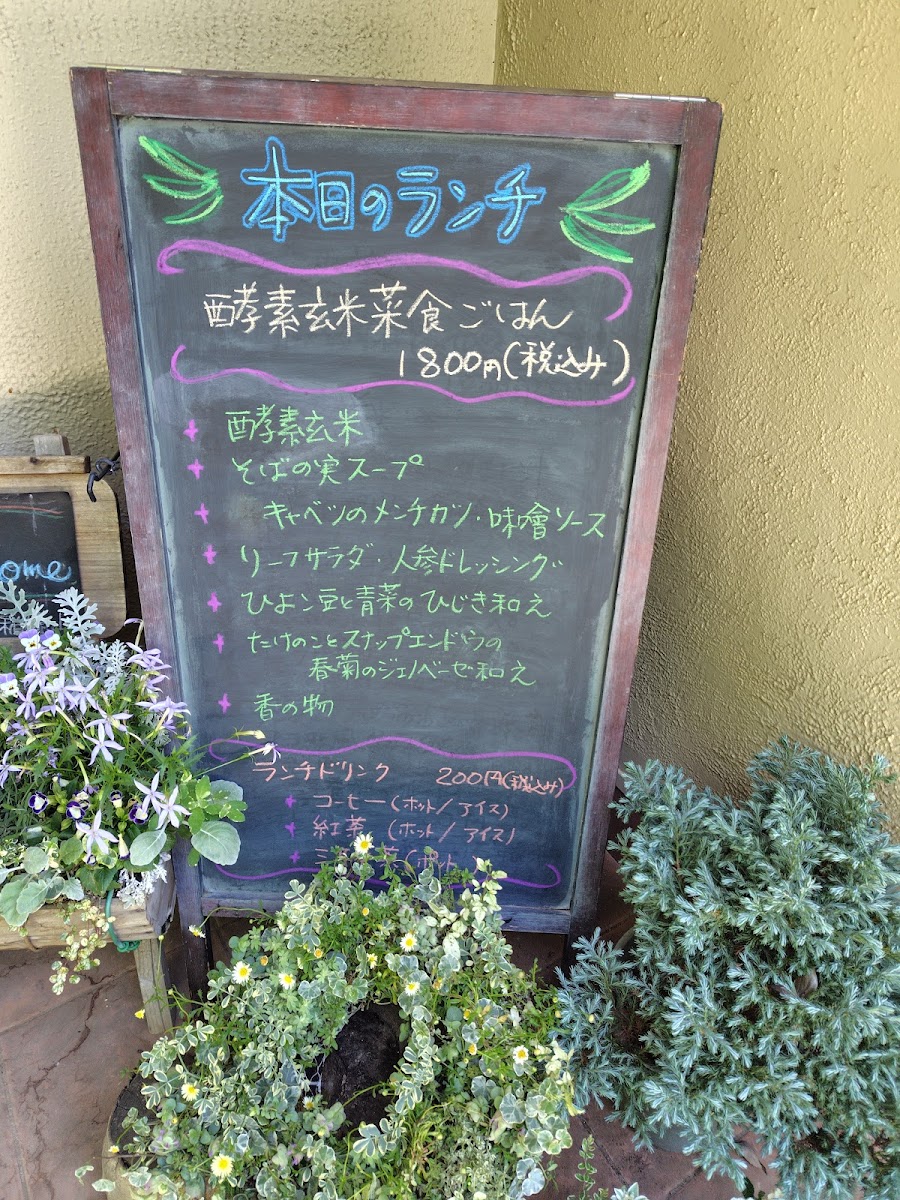 本日のランチ
酵素玄米菜食ごはん
1800円(税込み)
酵素玄米
そばの実スープ
キャベツのメンチカツ・味噌ソース
リーフサラダ・人参ドレッシング
ひよこ豆と青菜のひじき和え
たけのことスナップエンドウの
春菊のジェノベーゼ和え
香の物
ランチドリンク 200円(税込み)
コーヒー(ホット/アイス)
紅茶 (ホット/アイス)
(ホット
ome